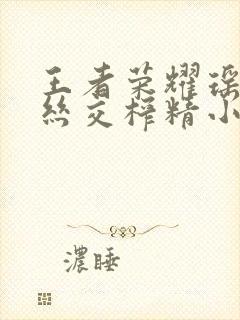 王者荣耀瑶
丝交榨精小
濃睡